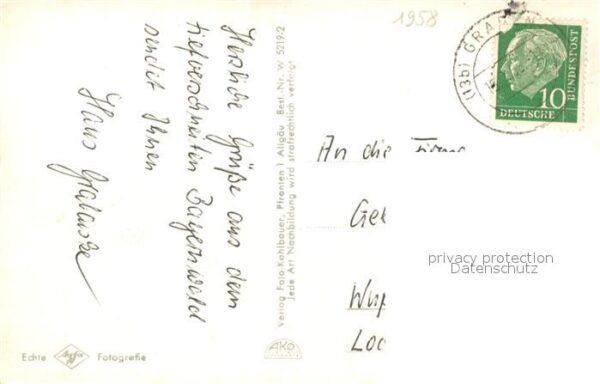 1958
Herzliche Grüße aus dem
tiefverschneiten Bayernwald
sendet Ihnen
Hans
Verlag Foto-Kohlbauer, Pfronten / Allgäu Best.-Nr. W 5219/2
Jede Art Nachbildung wird strafrechtlich verfolgt
(13b)
10
DEUTSCHE
BUNDESPOST
An die Firma
privacy protection
Datenschutz
AKO
Echte Agfa Fotografie